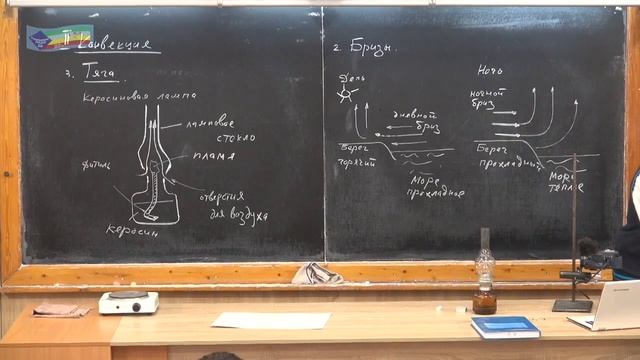 II Конвекция
3. Тяга
Керосиновая лампа
ламповое
стекло
пламя
фитиль
отверстия
для воздуха
керосин
2. Бризы.
День
дневной
бриз
Берег
горячий
Море
прохладное
Ночь
ночной
бриз
Берег
прохладный
Море
теплое